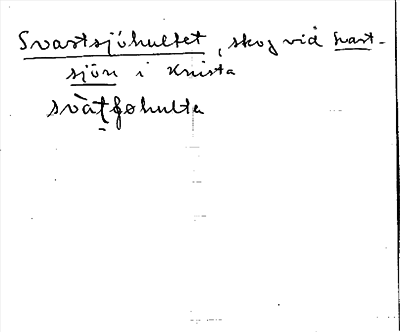 Svartsjöhultet, skog vid Svart-
sjön i Knista
svàt̠fɷhulta